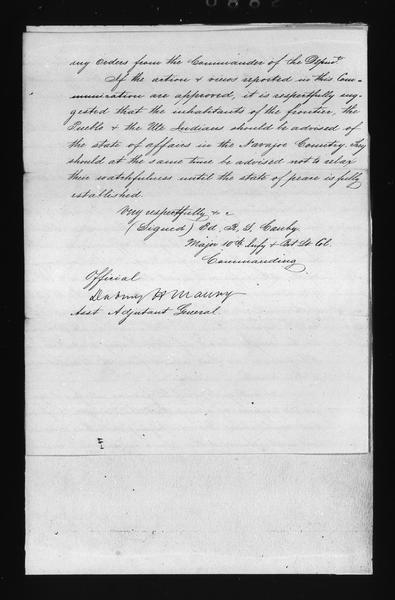 my orders from the Commander of the Depmt
If the action & views reported in this Com-
munication are approved, it is respectfully sug-
gested that the inhabitants of the frontier, the
Pueblo & the Ute Indians should be advised of
the state of affairs in the Navajoe Country. They
should at the same time be advised not to relax
their watchfulness until the state of peace is fully
established.
Very respectfully & c
(Signed) Ed. R. S. Canby.
Major 10th Infy & Bvt Lt Col.
Commanding
Official
Dabney H Maury
Asst Adjutant General.